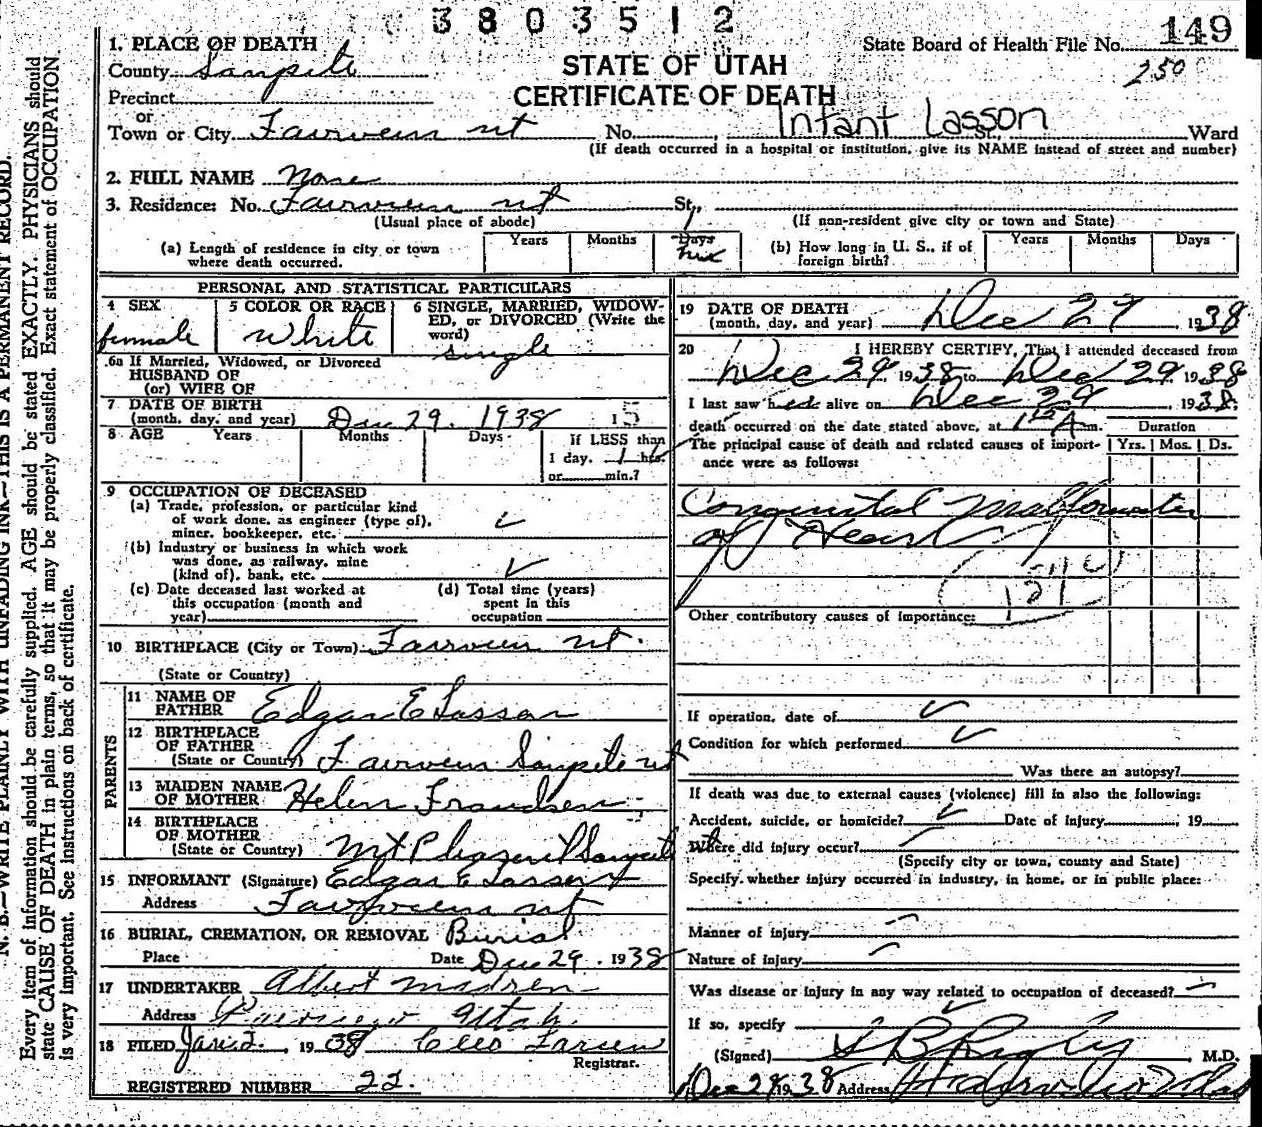 3803512
149
State Board of Health File No.
250
1. PLACE OF DEATH
County Sanpete
STATE OF UTAH
CERTIFICATE OF DEATH
Precinct
or
Town or City Fairview ut No. St., Infant Lasson Ward
(If death occurred in a hospital or institution, give its NAME instead of street and number)
2. FULL NAME None
3. Residence: No. Fairview ut St.,
(Usual place of abode) (If non-resident give city or town and State)
(a) Length of residence in city or town where death occurred. Years Months Days
(b) How long in U. S., if of foreign birth? Years Months Days
PERSONAL AND STATISTICAL PARTICULARS
4 SEX female
5 COLOR OR RACE White
6 SINGLE, MARRIED, WIDOWED, or DIVORCED (Write the word) single
6a If Married, Widowed, or Divorced
HUSBAND OF
(or) WIFE OF
7 DATE OF BIRTH
(month, day, and year) Dec 29. 1938
8 AGE Years Months Days If LESS than
1 day, 1 hrs.
or min.?
9 OCCUPATION OF DECEASED
(a) Trade, profession, or particular kind
of work done, as engineer (type of),
miner, bookkeeper, etc.
(b) Industry or business in which work
was done, as railway, mine
(kind of), bank, etc.
(c) Date deceased last worked at
this occupation (month and
year)
(d) Total time (years)
spent in this
occupation
10 BIRTHPLACE (City or Town) Fairview ut.
(State or Country)
PARENTS
11 NAME OF
FATHER Edgar E Lasson
12 BIRTHPLACE
OF FATHER
(State or Country) Fairview Sanpete ut
13 MAIDEN NAME
OF MOTHER Helen Frandsen
14 BIRTHPLACE
OF MOTHER
(State or Country) Mt Pleasent Sanpete ut
15 INFORMANT (Signature) Edgar E Lasson
Address Fairview ut
16 BURIAL, CREMATION, OR REMOVAL Burial
Place Date Dec 29. 1938
17 UNDERTAKER Albert
Address Fairview Utah.
18 FILED Jan 2, 19 Cleo Larsen
Registrar.
REGISTERED NUMBER 22.
19 DATE OF DEATH
(month, day, and year) Dec 29 1938
20 I HEREBY CERTIFY, That I attended deceased from
Dec 29 1938 to Dec 29 1938
I last saw h alive on Dec 29, 1938;
death occurred on the date stated above, at m. Duration
The principal cause of death and related causes of importance were as follows: Yrs. Mos. Ds.
Congenital
of Heart
Other contributory causes of importance:
If operation, date of
Condition for which performed
Was there an autopsy?
If death was due to external causes (violence) fill in also the following:
Accident, suicide, or homicide? Date of injury , 19
Where did injury occur?
(Specify city or town, county and State)
Specify whether injury occurred in industry, in home, or in public place:
Manner of injury
Nature of injury
Was disease or injury in any way related to occupation of deceased?
If so, specify
(Signed) , M.D.
Dec 29 1938 Address
N. B.—WRITE PLAINLY WITH UNFADING INK—THIS IS A PERMANENT RECORD.
Every item of information should be carefully supplied. AGE should be stated EXACTLY. PHYSICIANS should
state CAUSE OF DEATH in plain terms, so that it may be properly classified. Exact statement of OCCUPATION
is very important. See instructions on back of certificate.